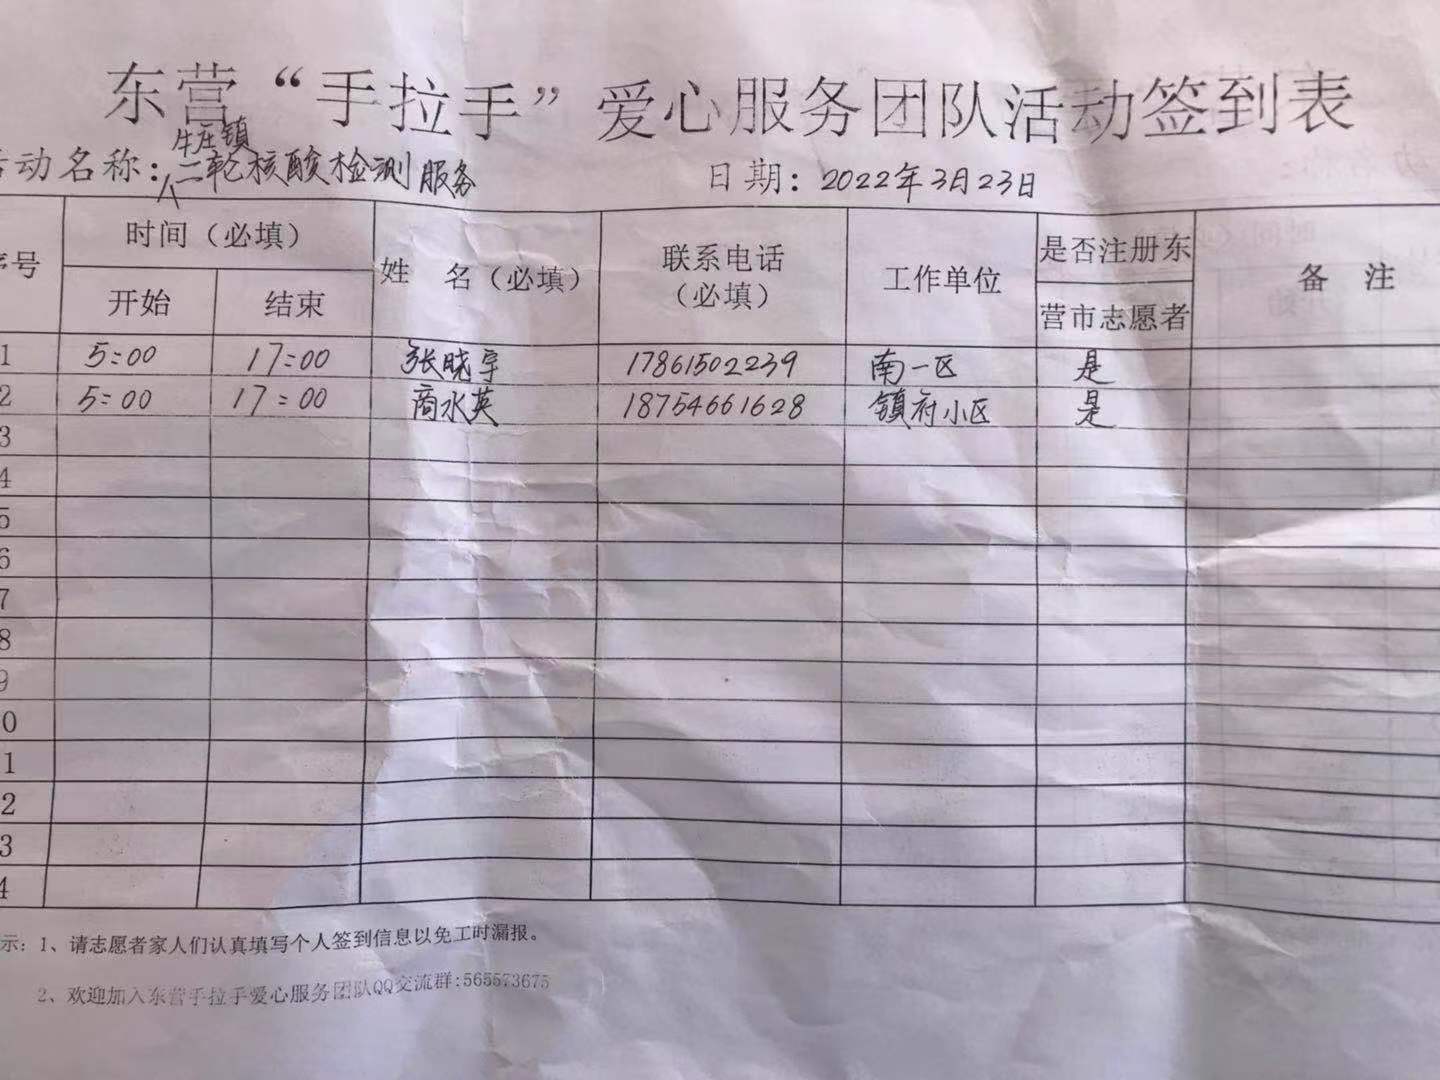 东营“手拉手”爱心服务团队活动签到表
牛庄镇
活动名称：二轮核酸检测服务 日期：2022年3月23日
序号 时间（必填） 姓 名（必填） 联系电话（必填） 工作单位 是否注册东营市志愿者 备 注
开始 结束
1 5:00 17:00 张晓宇 17861502239 南一区 是
2 5:00 17:00 商水英 18754661628 镇府小区 是
3
4
5
6
7
8
9
0
1
2
3
4
示：1、请志愿者家人们认真填写个人签到信息以免工时漏报。
2、欢迎加入东营手拉手爱心服务团队QQ交流群:565573675